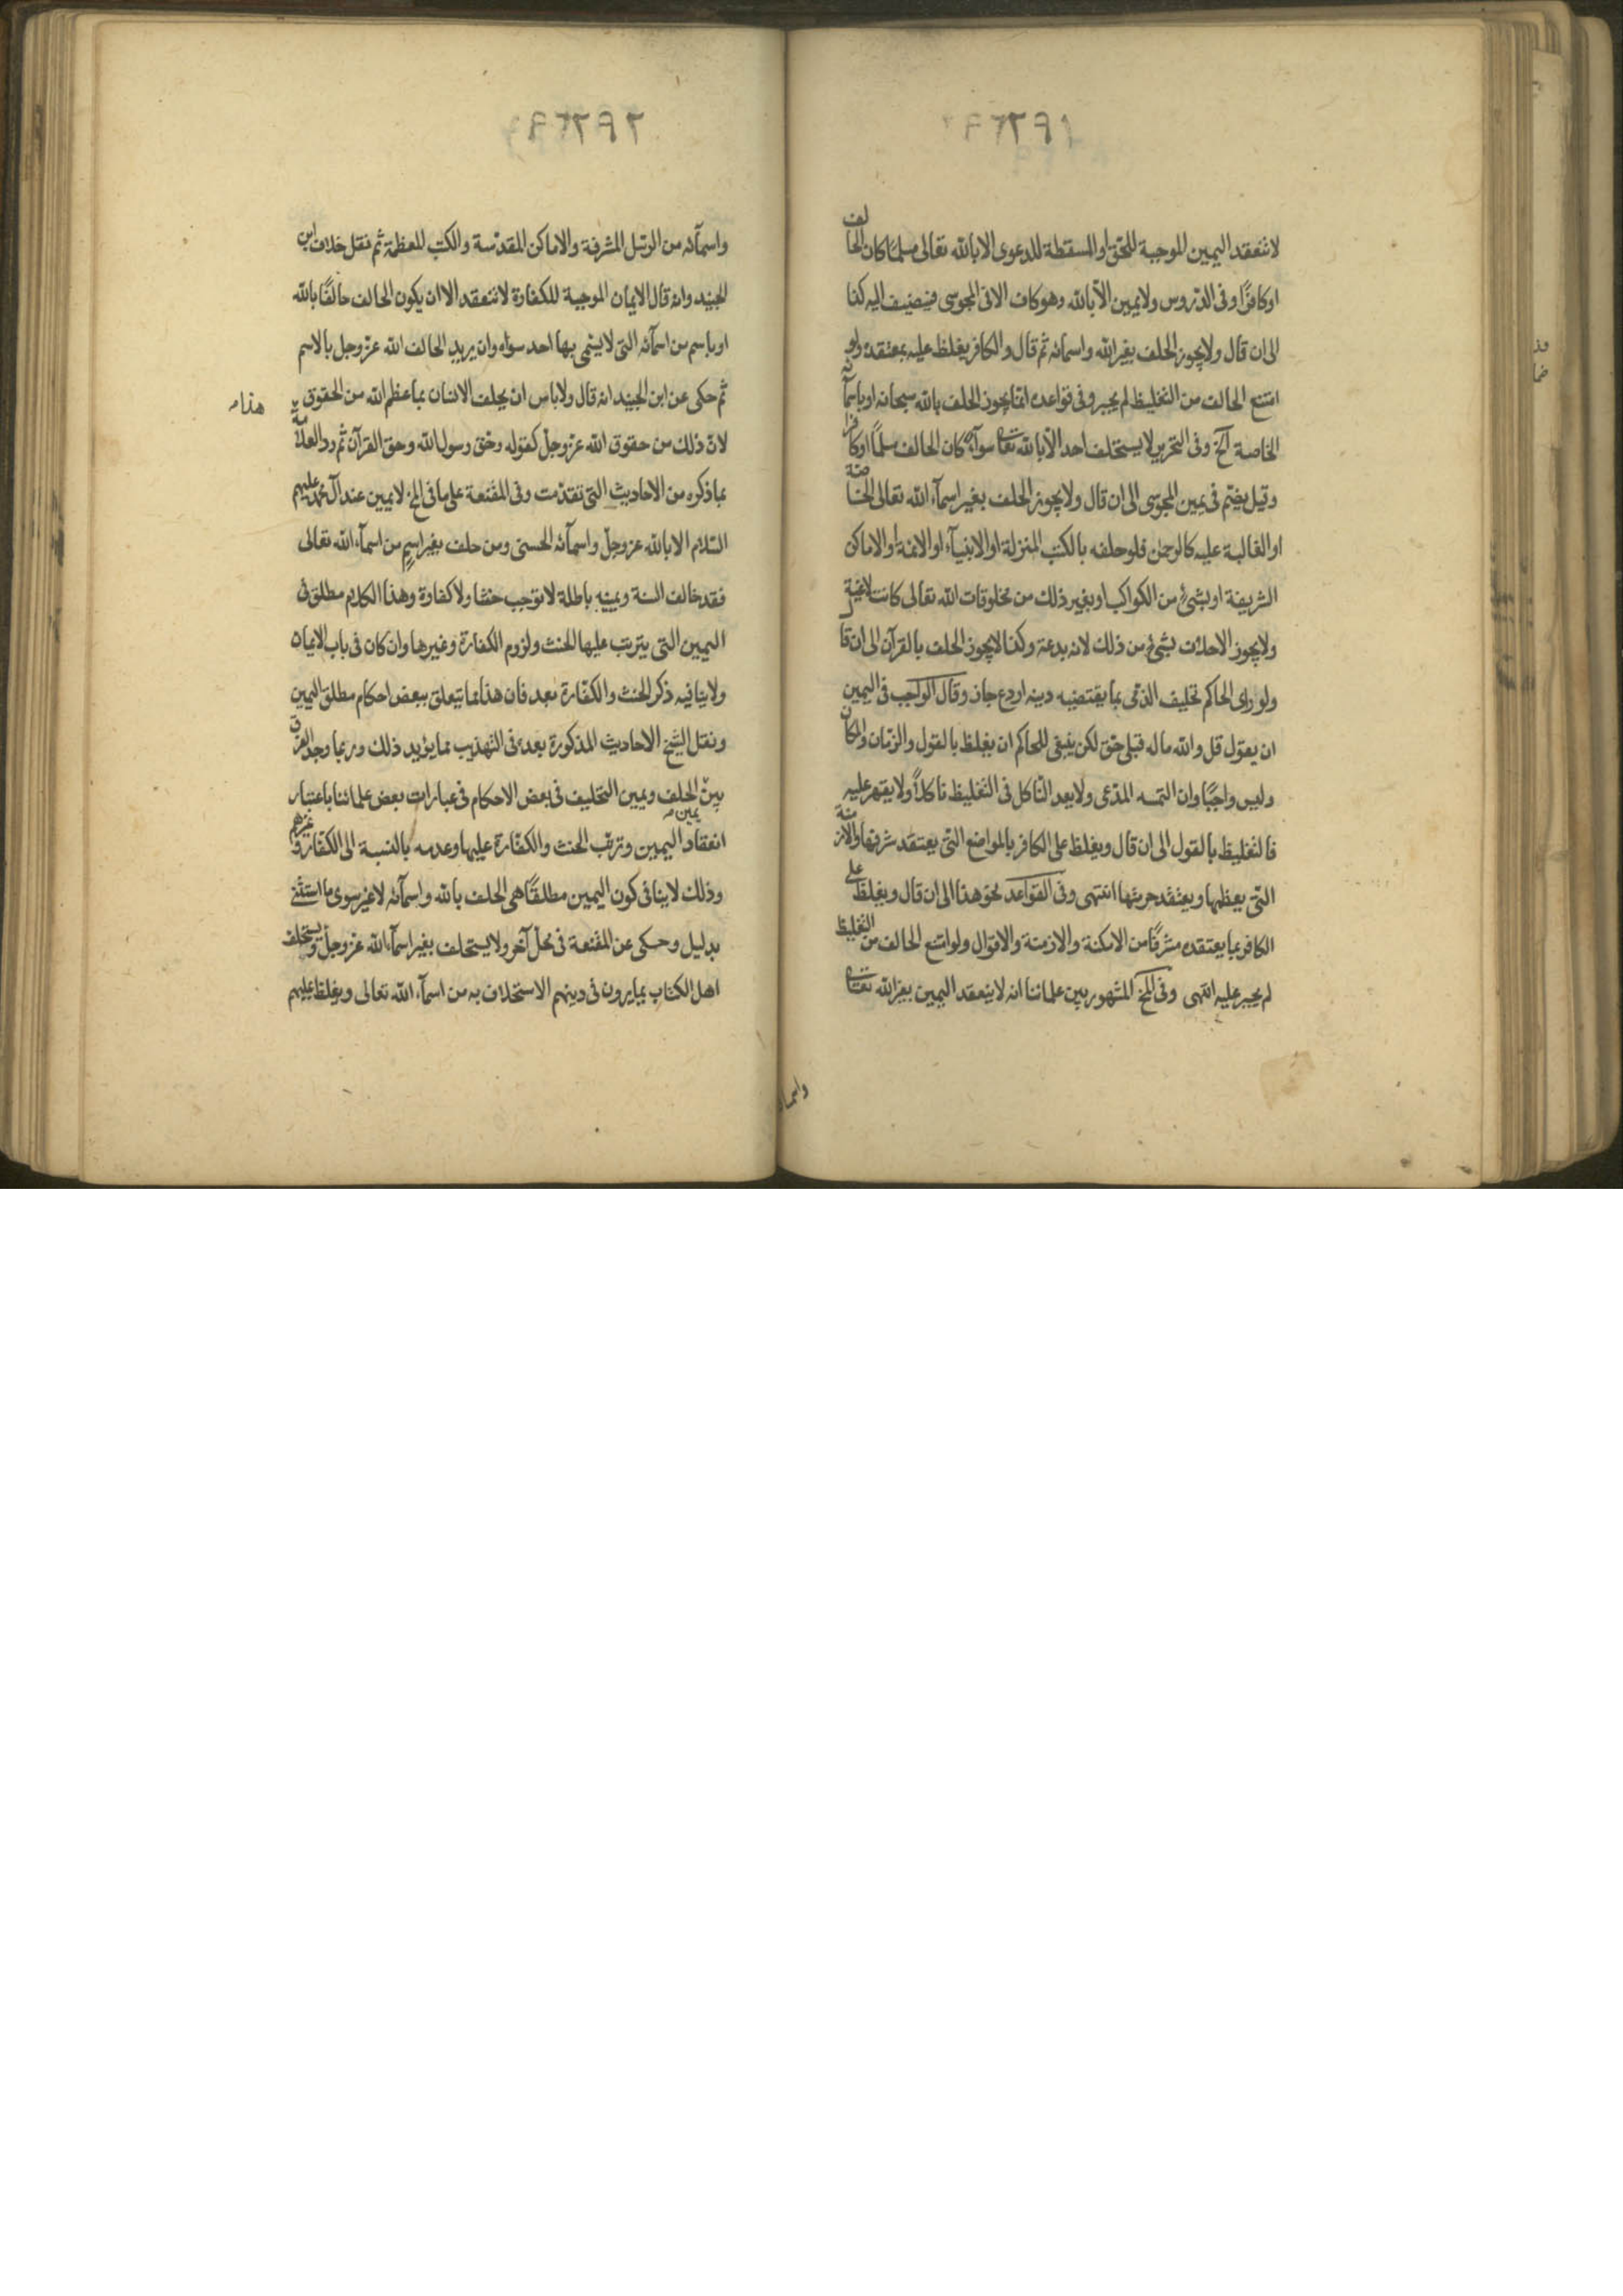 لا تنعقد اليمين الموجبة للحق او المسقطة للدعوى الا بالله تعالى مسلمًا كان الحالف
او كافرًا وفى الدروس ولا يمين الّا بالله وهو كاف الا فى المجوسى فيضيف اليه كذا
الى ان قال ولا يجوز الحلف بغير الله واسمائه ثم قال والكافر يغلظ عليه بمعتقده ولو
امتنع الحالف من التغليظ لم يجبر وفى قواعده انما يجوز الحلف بالله سبحانه او باسمآئه
الخاصة آلخ وفى التحرير لا يستحلف احد الّا بالله تعالى سوآء كان الحالف مسلمًا او كافرا
وقيل يضم فى يمين المجوسى الى ان قال ولا يجوز الحلف بغير اسمآء الله تعالى الخاصة
او الغالبة عليه كالرحمن فلو حلفه بالكتب المنزلة او الانبيآء او الائمة او الاماكن
الشريفة او بشئ من الكواكب او بغير ذلك من مخلوقات الله تعالى كانت لاغية
ولا يجوز الاحلاف بشئ من ذلك لانه بدعة وكذا لا يجوز الحلف بالقرآن الى ان قال
ولو راى الحاكم تحليف الذمى بما يقتضيه دينه اردع جاز وقال الواجب فى اليمين
ان يقول قل والله ما له قبلى حق لكن ينبغى للحاكم ان يغلظ بالقول والزمان والمكان
وليس واجبًا وان التمسه المدعى ولا يعد الناكل فى التغليظ ناكلًا ولا يقهر عليه
فالتغليظ بالقول الى ان قال ويغلظ على الكافر بالمواضع التى يعتقد شرفها والازمنة
التى يعظمها ويعتقد حرمتها انتهى وفى القواعد نحو هذا الى ان قال ويغلظ على
الكافر بما يعتقده مشرفًا من الامكنة والازمنة والاقوال ولو امتنع الحالف من التغليظ
لم يجبر عليه انتهى وفى المخ المشهور بين علمائنا انه لا ينعقد اليمين بغير الله تعالى
واسما
واسمآئه من الرسل المشرفة والاماكن المقدسة والكتب المعظمة ثم نقل خلاف ابن
الجنيد وانه قال الايمان الموجبة للكفارة لا تنعقد الا ان يكون الحالف حالفًا بالله
او باسم من اسمآئه التى لا يسمى بها احد سواه وان يريد الحالف الله عز وجل بالاسم
ثم حكى عن ابن الجنيد انه قال ولا باس ان يحلف الانسان بما عظم الله من الحقوق
هذا
لان ذلك من حقوق الله عز وجل كقوله وحق رسول الله وحق القرآن ثم رد العلامة
بما ذكره من الاحاديث التى تقدمت وفى المقنعة على ما فى المخ لا يمين عند آل محمد عليهم
السلام الا بالله عز وجل واسمآئه الحسنى ومن حلف بغير اسمٍ من اسمآء الله تعالى
فقد خالف السنة ويمينه باطلة لا توجب حنثا ولا كفارة وهذا الكلام مطلق فى
اليمين التى يترتب عليها الحنث ولزوم الكفارة وغيرها وان كان فى باب الايمان
ولا ينافيه ذكر الحنث والكفّارة بعد فان هذا مما يتعلق ببعض احكام مطلق اليمين
ونقل الشيخ الاحاديث المذكورة بعده فى التهذيب مما يؤيد ذلك وربما وجد الفرق
بين الحلف ويمين التحليف فى بعض الاحكام فى عبارات بعض علمائنا باعتبار
يمين
انعقاد اليمين وترتب الحنث والكفّارة عليها وعدمه بالنسبة الى الكفار وغيرهم
وذلك لا ينافى كون اليمين مطلقًا هى الحلف بالله واسمآئه لا غير سوى ما استثنى
بدليل وحكى عن المقنعة فى محل آخر ولا يستحلف بغير اسمآء الله عز وجل ويستحلف
اهل الكتاب بما يرون فى دينهم الاستحلاف به من اسمآء الله تعالى ويغلظ عليهم